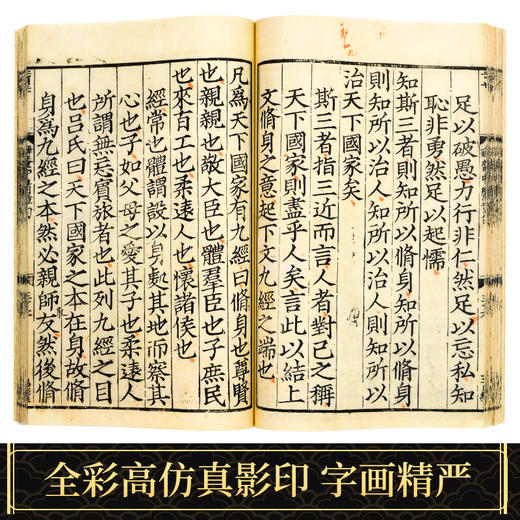 足以破愚力行非仁然足以忘私知
恥非勇然足以起懦
知斯三者則知所以脩身知所以脩身
則知所以治人知所以治人則知所以
治天下國家矣
斯三者指三近而言人者對己之稱
天下國家則盡乎人矣言此以結上
文脩身之意起下文九經之端也
凡爲天下國家有九經曰脩身也尊賢
也親親也敬大臣也體羣臣也子庶民
也來百工也柔遠人也懷諸侯也
經常也體謂設以身處其地而察其
心也子如父母之愛其子也柔遠人
所謂無忘賓旅者也此列九經之目
也呂氏曰天下國家之本在身故脩
身爲九經之本然必親師友然後脩
全彩高仿真影印 字画精严